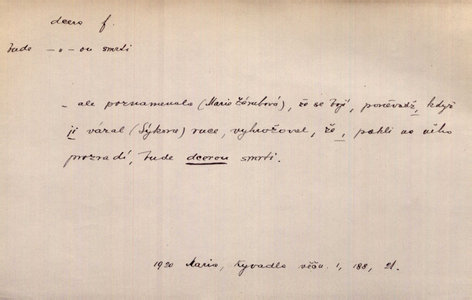 dcera f.
bude – o – ou smrti
– ale poznamenala (Marie Zárubová), že se bojí, poněvadž, když
jí vázal (Sýkora) ruce, vyhrožoval, že, pakli na něho
prozradí, bude dcerou smrti.
1920 Maria, Kyvadlo věčn. 1, 188, 21.